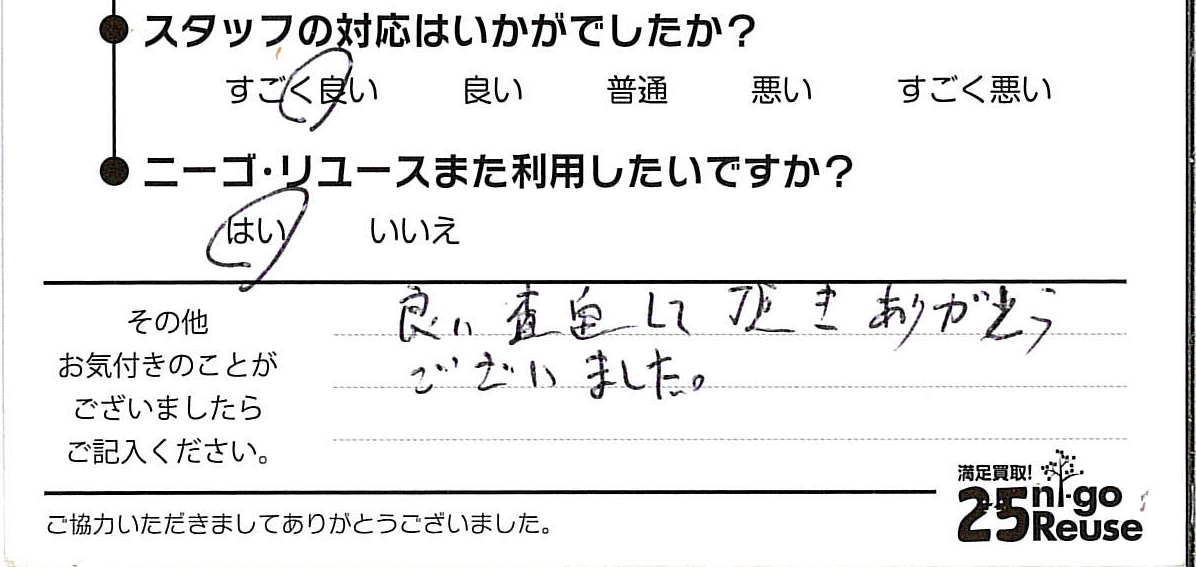 スタッフの対応はいかがでしたか？
すごく良い 良い 普通 悪い すごく悪い
ニーゴ・リユースまた利用したいですか？
はい いいえ
その他
お気付きのことが
ございましたら
ご記入ください。
良い査定して頂きありがとう
ございました。
満足買取!
25 ni-go
Reuse
ご協力いただきましてありがとうございました。